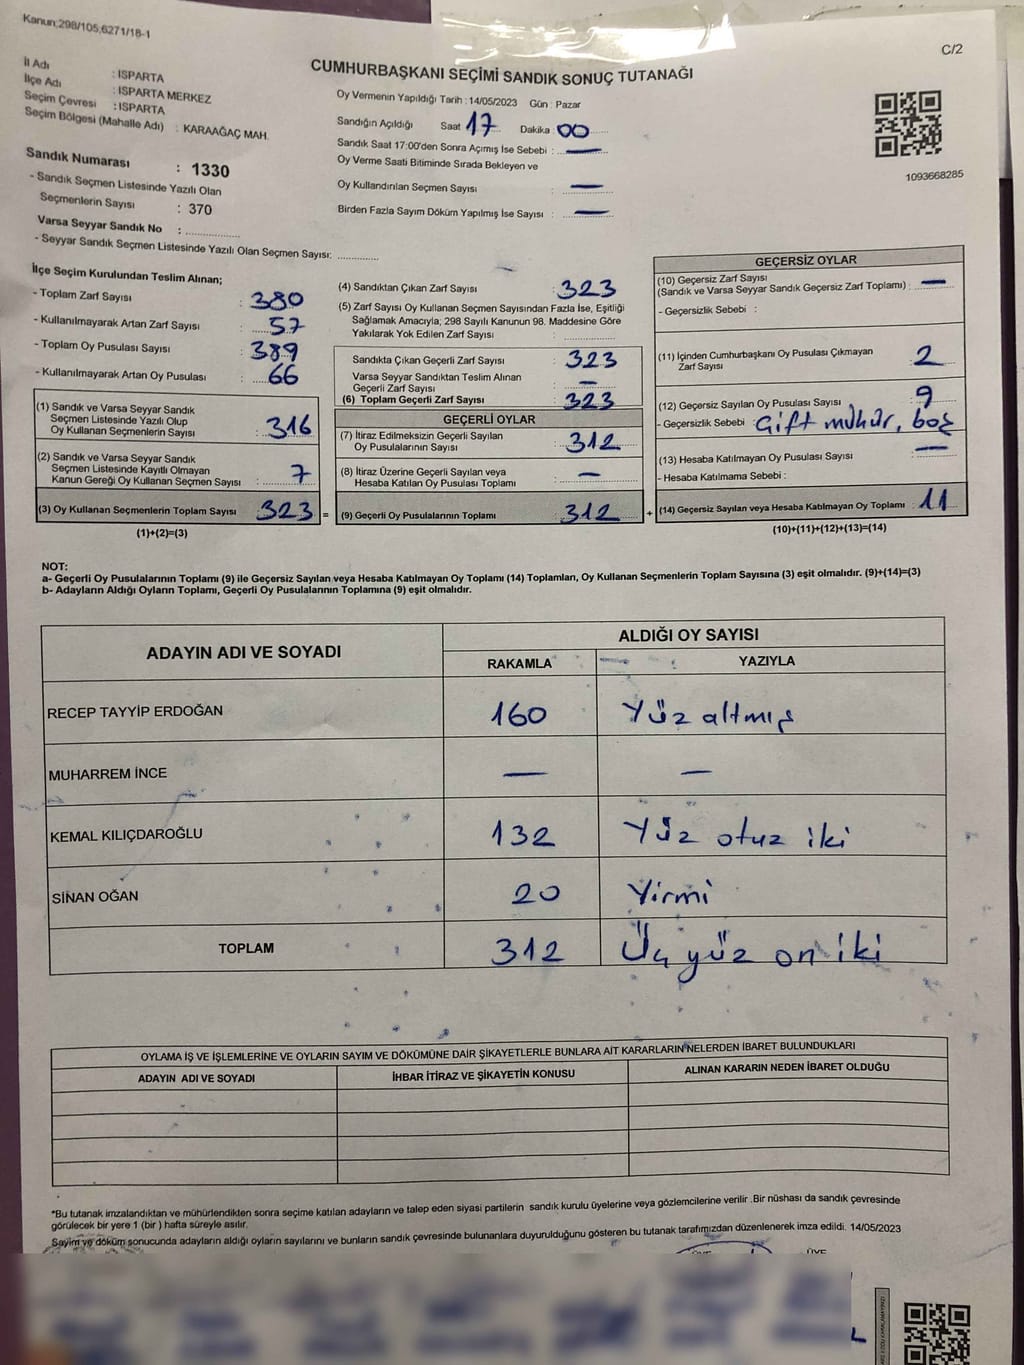 Kanun;298/105,6271/18-1
C/2
İl Adı : ISPARTA
İlçe Adı : ISPARTA MERKEZ
Seçim Çevresi : ISPARTA
Seçim Bölgesi (Mahalle Adı) : KARAAĞAÇ MAH.
Sandık Numarası : 1330
- Sandık Seçmen Listesinde Yazılı Olan
Seçmenlerin Sayısı : 370
Varsa Seyyar Sandık No : ..............
- Seyyar Sandık Seçmen Listesinde Yazılı Olan Seçmen Sayısı: ..............
CUMHURBAŞKANI SEÇİMİ SANDIK SONUÇ TUTANAĞI
Oy Vermenin Yapıldığı Tarih : 14/05/2023 Gün : Pazar
Sandığın Açıldığı Saat 17 Dakika 00
Sandık Saat 17:00'den Sonra Açımış İse Sebebi : —
Oy Verme Saati Bitiminde Sırada Bekleyen ve
Oy Kullandırılan Seçmen Sayısı : —
Birden Fazla Sayım Döküm Yapılmış İse Sayısı : —
1093668285
İlçe Seçim Kurulundan Teslim Alınan;
- Toplam Zarf Sayısı : 380
- Kullanılmayarak Artan Zarf Sayısı : 57
- Toplam Oy Pusulası Sayısı : 389
- Kullanılmayarak Artan Oy Pusulası : 66
(1) Sandık ve Varsa Seyyar Sandık
Seçmen Listesinde Yazılı Olup
Oy Kullanan Seçmenlerin Sayısı : 316
(2) Sandık ve Varsa Seyyar Sandık
Seçmen Listesinde Kayıtlı Olmayan
Kanun Gereği Oy Kullanan Seçmen Sayısı : 7
(3) Oy Kullanan Seçmenlerin Toplam Sayısı 323 =
(1)+(2)=(3)
(4) Sandıktan Çıkan Zarf Sayısı : 323
(5) Zarf Sayısı Oy Kullanan Seçmen Sayısından Fazla İse, Eşitliği
Sağlamak Amacıyla; 298 Sayılı Kanunun 98. Maddesine Göre
Yakılarak Yok Edilen Zarf Sayısı :
Sandıkta Çıkan Geçerli Zarf Sayısı : 323
Varsa Seyyar Sandıktan Teslim Alınan
Geçerli Zarf Sayısı : —
(6) Toplam Geçerli Zarf Sayısı : 323
GEÇERLİ OYLAR
(7) İtiraz Edilmeksizin Geçerli Sayılan
Oy Pusulalarının Sayısı : 312
(8) İtiraz Üzerine Geçerli Sayılan veya
Hesaba Katılan Oy Pusulası Toplamı : —
(9) Geçerli Oy Pusulalarının Toplamı : 312 +
GEÇERSİZ OYLAR
(10) Geçersiz Zarf Sayısı
(Sandık ve Varsa Seyyar Sandık Geçersiz Zarf Toplamı) : —
- Geçersizlik Sebebi :
(11) İçinden Cumhurbaşkanı Oy Pusulası Çıkmayan
Zarf Sayısı : 2
(12) Geçersiz Sayılan Oy Pusulası Sayısı : 9
- Geçersizlik Sebebi : Çift mühür, boş
(13) Hesaba Katılmayan Oy Pusulası Sayısı : —
- Hesaba Katılmama Sebebi :
(14) Geçersiz Sayılan veya Hesaba Katılmayan Oy Toplamı : 11
(10)+(11)+(12)+(13)=(14)
NOT:
a- Geçerli Oy Pusulalarının Toplamı (9) ile Geçersiz Sayılan veya Hesaba Katılmayan Oy Toplamı (14) Toplamları, Oy Kullanan Seçmenlerin Toplam Sayısına (3) eşit olmalıdır. (9)+(14)=(3)
b- Adayların Aldığı Oyların Toplamı, Geçerli Oy Pusulalarının Toplamına (9) eşit olmalıdır.
ADAYIN ADI VE SOYADI ALDIĞI OY SAYISI
RAKAMLA YAZIYLA
RECEP TAYYİP ERDOĞAN 160 Yüz altmış
MUHARREM İNCE — —
KEMAL KILIÇDAROĞLU 132 Yüz otuz iki
SİNAN OĞAN 20 Yirmi
TOPLAM 312 Üç yüz on iki
OYLAMA İŞ VE İŞLEMLERİNE VE OYLARIN SAYIM VE DÖKÜMÜNE DAİR ŞİKAYETLERLE BUNLARA AİT KARARLARIN NELERDEN İBARET BULUNDUKLARI
ADAYIN ADI VE SOYADI İHBAR İTİRAZ VE ŞİKAYETİN KONUSU ALINAN KARARIN NEDEN İBARET OLDUĞU
*Bu tutanak imzalandıktan ve mühürlendikten sonra seçime katılan adayların ve talep eden siyasi partilerin sandık kurulu üyelerine veya gözlemcilerine verilir .Bir nüshası da sandık çevresinde
görülecek bir yere 1 (bir ) hafta süreyle asılır.
Sayım ve döküm sonucunda adayların aldığı oyların sayılarını ve bunların sandık çevresinde bulunanlara duyurulduğunu gösteren bu tutanak tarafımızdan düzenlenerek imza edildi. 14/05/2023
ÜYE